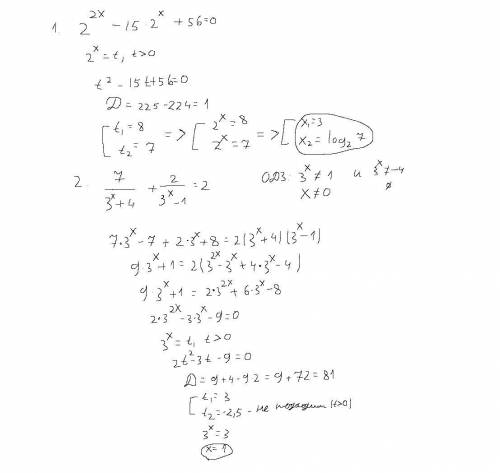 1. 2^{2x} - 15·2^x + 56=0
2^x = t, t>0
t² - 15t+56=0
D = 225-224=1
[t₁ = 8 t₂ = 7 => [2^x = 8 2^x = 7 => [x₁=3 x₂ = log₂ 7
2. 7/(3^x+4) + 2/(3^x-1) = 2 ОДЗ: 3^x ≠ 1 и 3^x ≠ -4
x≠0 ø
7·3^x - 7 + 2·3^x + 8 = 2(3^x+4)(3^x-1)
9·3^x + 1 = 2(3^{2x} - 3^x + 4·3^x - 4)
9·3^x + 1 = 2·3^{2x} + 6·3^x - 8
2·3^{2x} - 3·3^x - 9=0
3^x = t, t>0
2t² - 3t - 9=0
D = 9+4·9·2 = 9+72 = 81
[t₁ = 3
t₂ = -2,5 - не подходит (t>0)
3^x = 3
x = 1